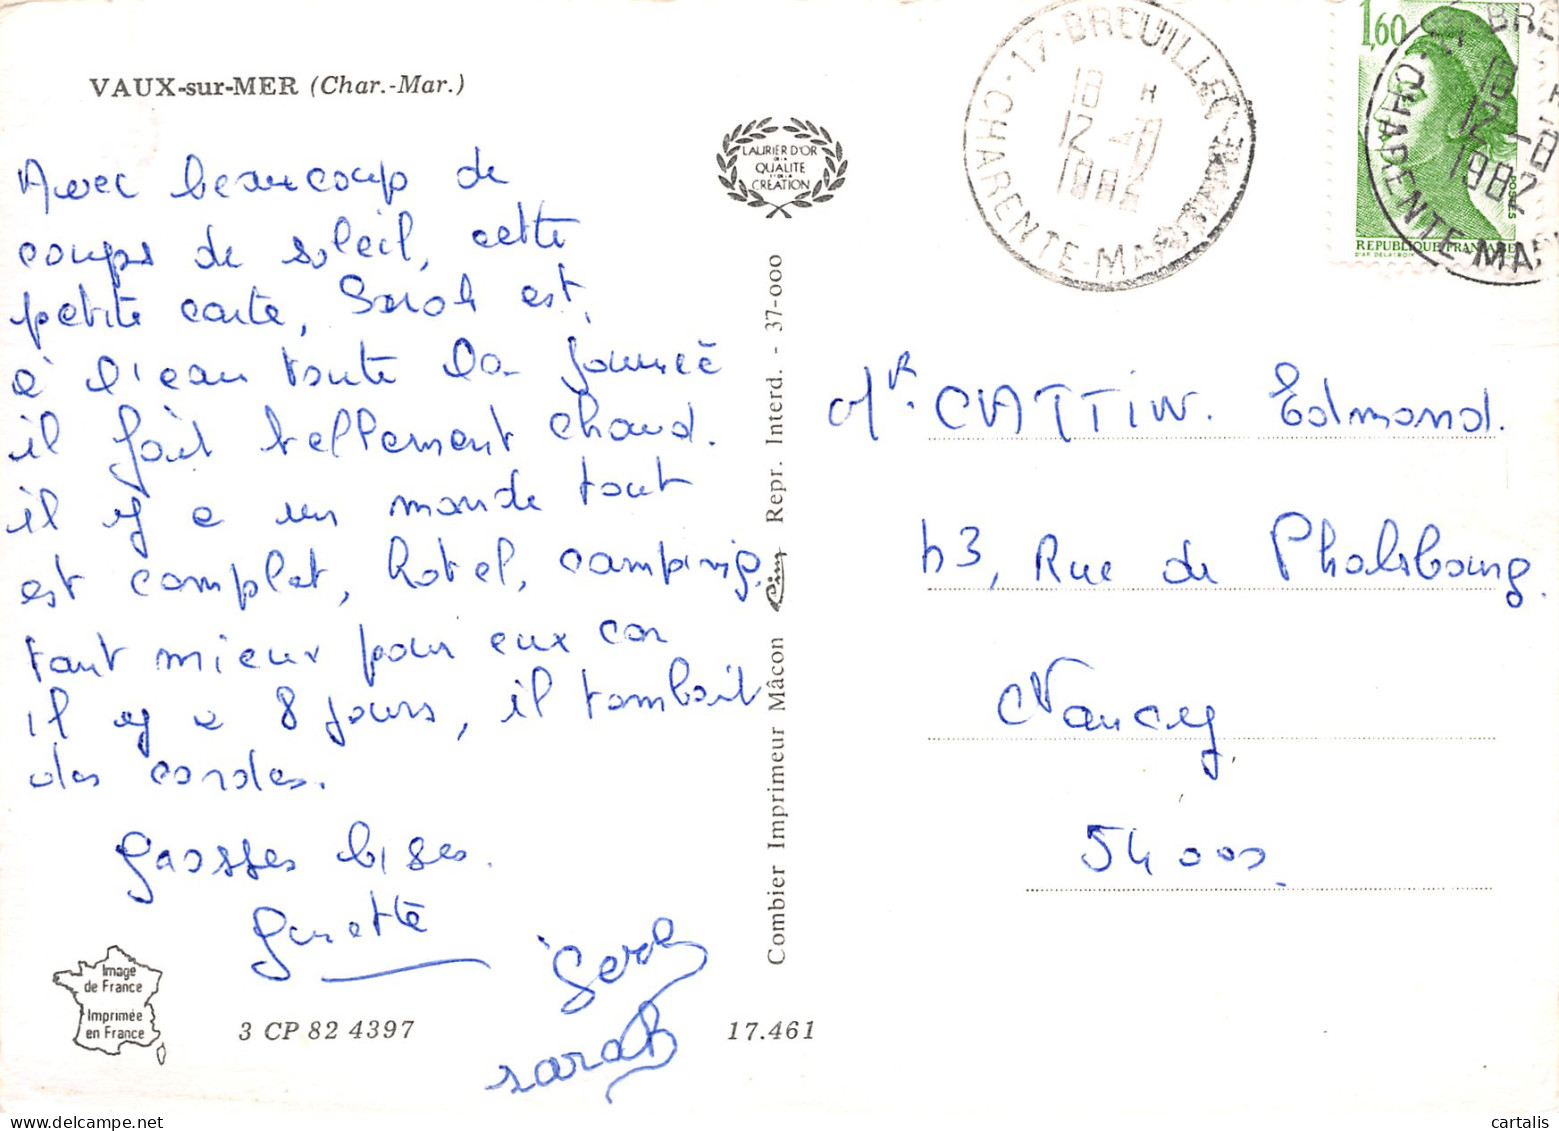 VAUX-sur-MER (Char.-Mar.)
Avec beaucoup de
coups de soleil, cette
petite carte, Sarah est
à l'eau toute la journée
il fait tellement chaud.
il y a un monde tout
est complet, hotel, camping,
tant mieux pour eux car
il y a 8 jours, il tombait
des cordes.
Grosses bises.
Ginette
Sarah
sarah
Image
de France
Imprimée
en France
3 CP 82 4397
17.461
LAURIER D'OR
DE LA
QUALITE
ET DE LA
CRÉATION
Combier Imprimeur Mâcon Cim Repr. Interd. - 37-000
17-BREUILLET
CHARENTE-MARITIME
18 H
12-8
1982
1,60
POSTES
REPUBLIQUE FRANCAISE
D'AP. DELACROIX
BRE
18 H
12-8
1982
CHARENTE-MAR
Mr. CATTIN. Edmond.
53, Rue de Phalsbourg.
Nancy,
54000.
cartalis